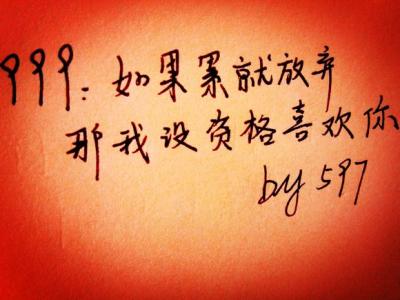 999:如果累就放弃
那我没资格喜欢你
by 597